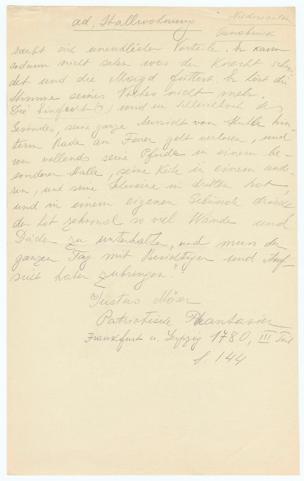 ad. Stallwohnung
Niedersachsen
Osnabrück
und unendlicher Vorteile. Er kann
nicht sehen was der Knecht
det und die Magd füttert. Er hört die
Stimme seines Viehes nicht mehr.
Die und
Gesindes, seine ganze Aussicht vom Stuhle hin
term Rade am Feuer geht verloren, und
wenn vollends seine Pferde in einem be
sonderen Stalle, seine Kühe in einem ande
ren, und seine Schweine im dritten hat,
und in einem eigenen Gebäude drischt
der hat zehnmal so viel Wände und
Dächer zu unterhalten, und muss den
ganzen Tag mit Besichtigen und Auf
sicht haben zubringen.
Justus Möser
Patriotische Phantasien
Frankfurt u. Leipzig 1780, III Teil
S. 144